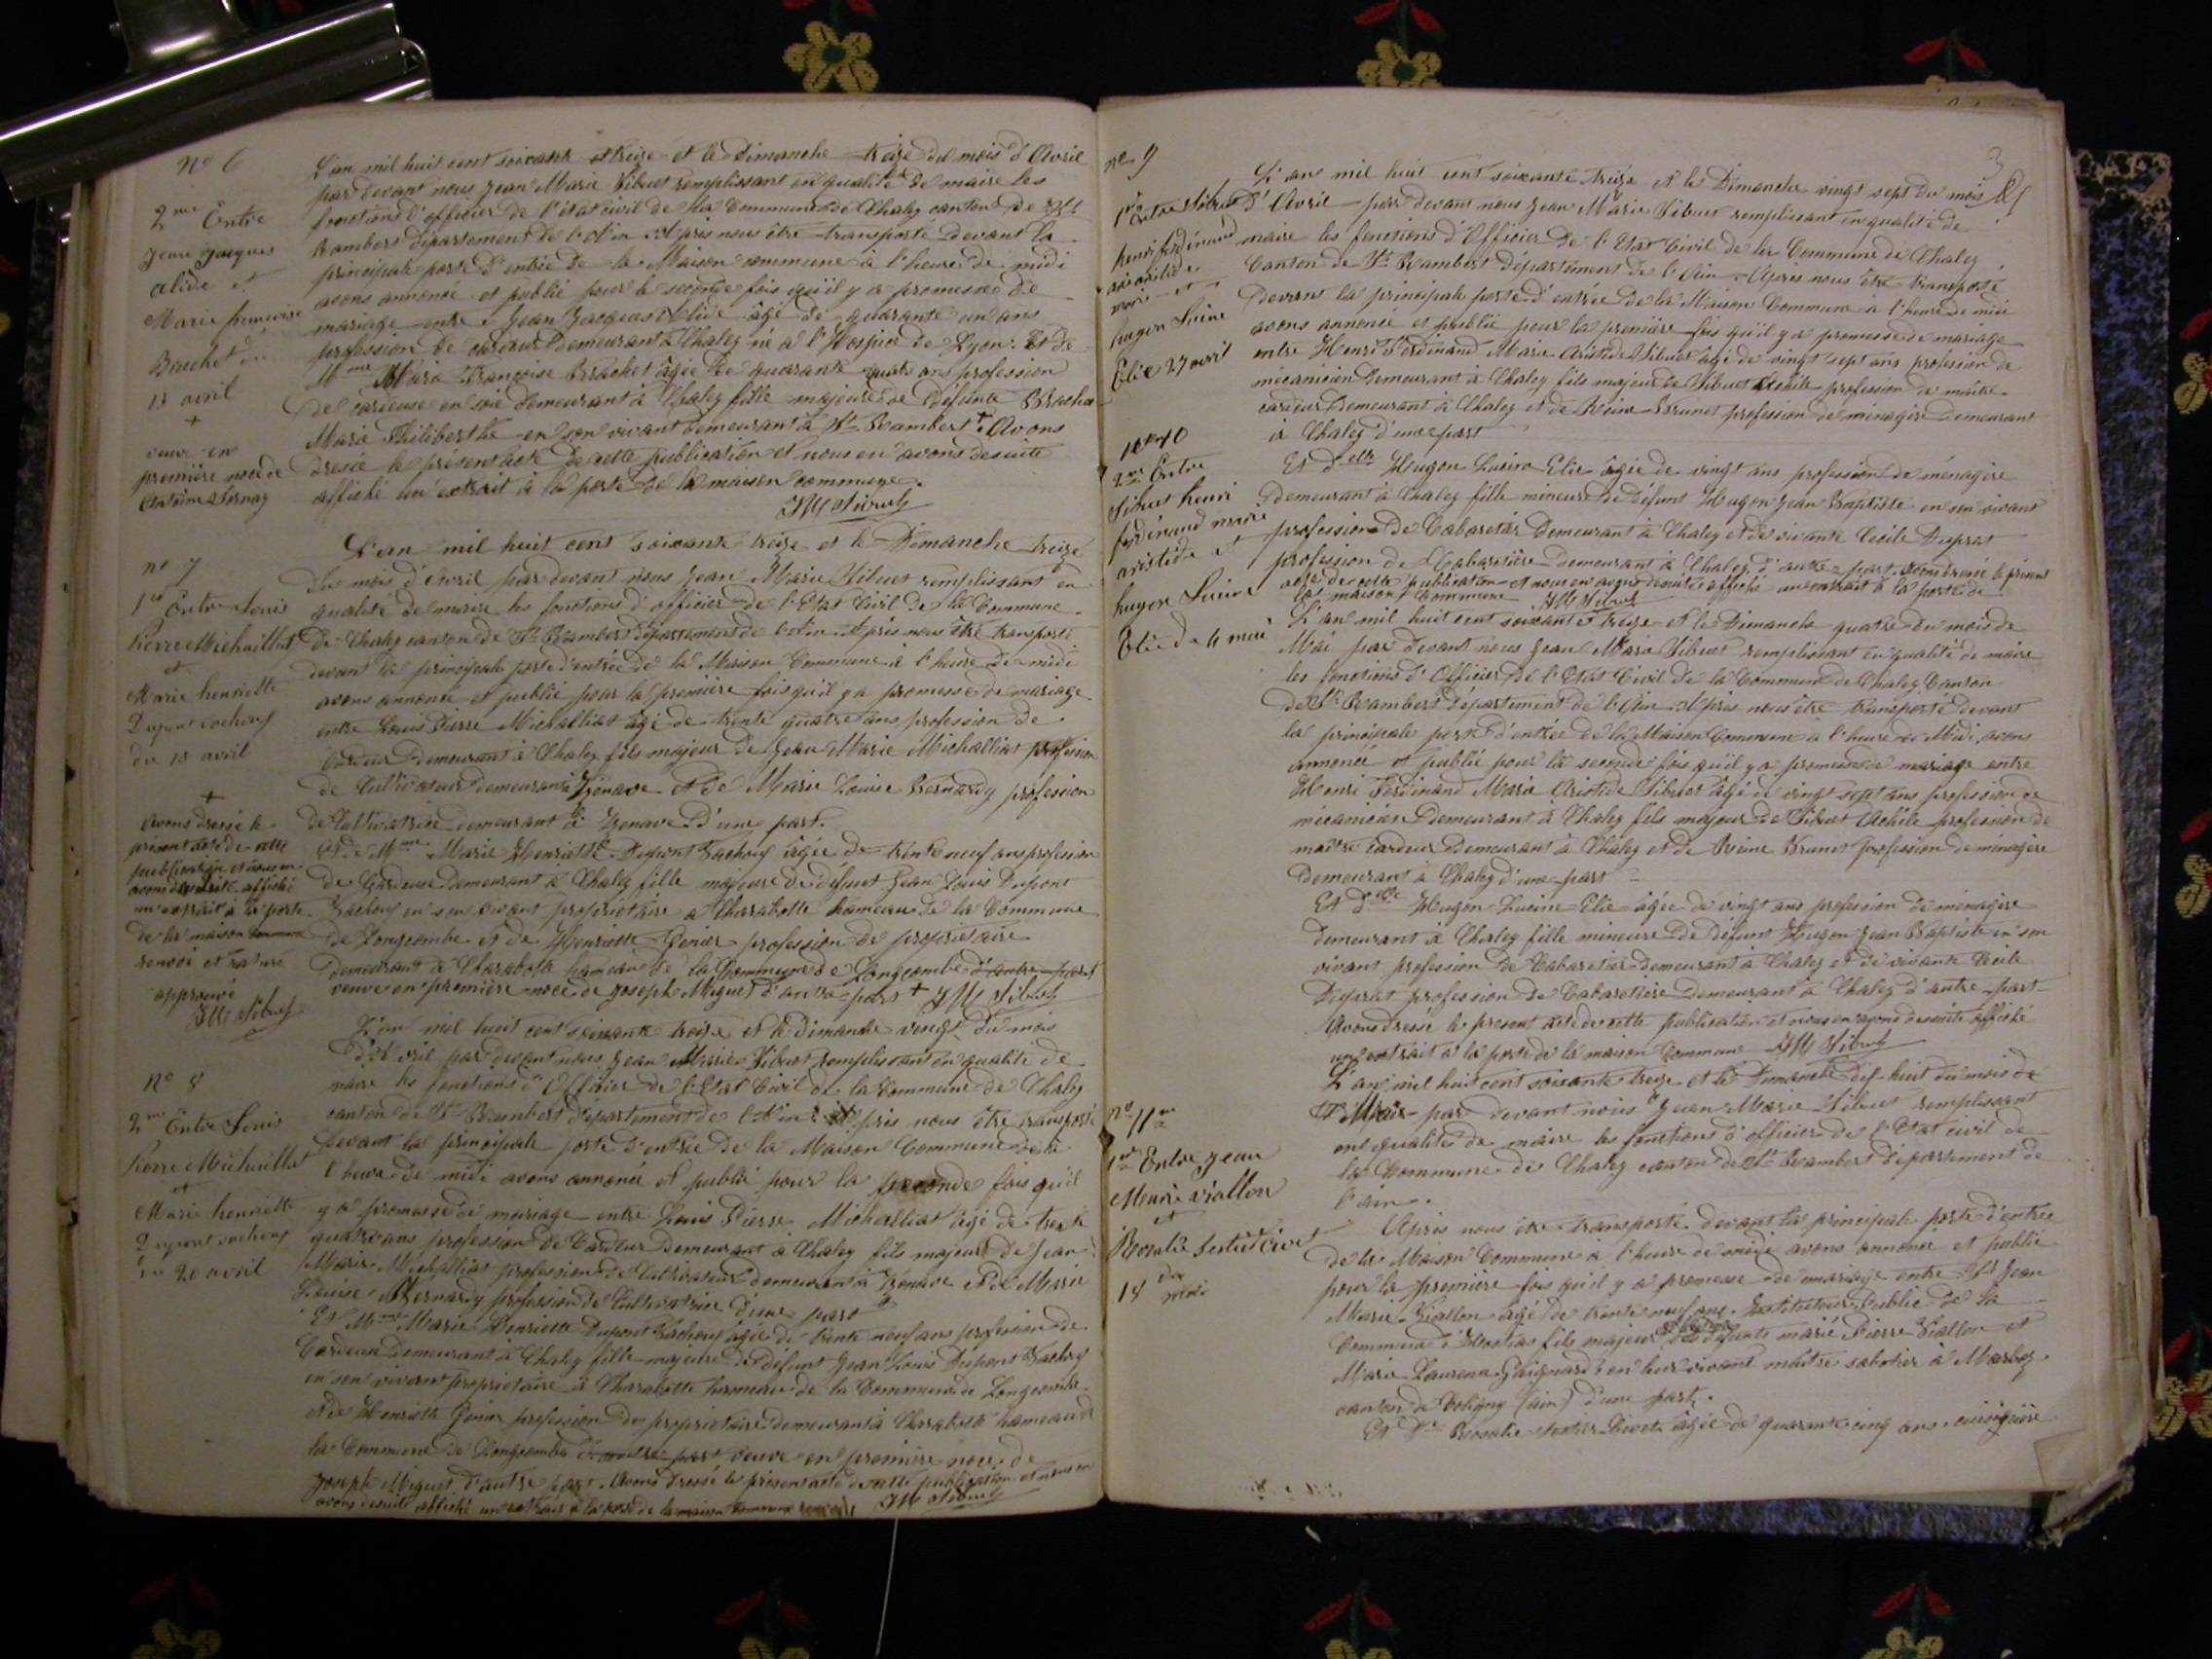 No 6
2me Entre
Jean Jacques
alide et
Marie françoise
Brachet du
13 avril
+
veuve en
première noce de
Antoine
L'an mil huit cent soixante et treize et le Dimanche treize du mois d'Avril
par devant nous Jean Marie Sibuet remplissant en qualité de maire les
fonctions d'officier de l'état civil de la Commune de Chaley canton de St
Rambert département de l'Ain. Après nous être transporté devant la
principale porte d'entrée de la Maison commune à l'heure de midi
avons annoncé et publié pour la seconde fois qu'il y a promesse de
mariage entre Jean Jacques Alide âgé de quarante un ans
profession de cardeur demeurant à Chaley né à l'Hospice de Lyon. Et de
Mme Marie Françoise Brachet âgée de quarante quatre ans profession
de cardeuse en soie demeurant à Chaley fille majeure de défunte Brachet
Marie Philiberthe en son vivant demeurant à St Rambert + Avons
dressé le présent acte de cette publication et nous en avons de suite
affiché un extrait à la porte de la maison commune.
JM Sibuet
no 7
1re Entre Louis
Pierre Michaillat
et
Marie henriette
Dupont
du 13 avril
L'an mil huit cent soixante treize et le Dimanche treize
du mois d'Avril par devant nous Jean Marie Sibuet remplissant en
qualité de maire les fonctions d'officier de l'Etat Civil de la Commune
de Chaley canton de St Rambert département de l'Ain. Après nous être transporté
devant la principale porte d'entrée de la Maison Commune à l'heure de midi
avons annoncé et publié pour la première fois qu'il y a promesse de mariage
entre Louis Pierre Michallias âgé de trente quatre ans profession de
Cardeur demeurant à Chaley fils majeur de Jean Marie Michallias profession
de Cultivateur demeurant à Izenave et de Marie Louise Bernardy profession
de Cultivatrice demeurant à Izenave d'une part.
Et de Mme Marie Henriette Dupont âgée de trente neuf ans profession
de Cardeuse demeurant à Chaley fille majeure de défunt Jean Louis Dupont
en son vivant propriétaire à Charabotte hameau de la Commune
de Longecombe et de Henriette Genier profession de propriétaire
demeurant à Charabotte hameau de la Commune de Longecombe d'autre part
veuve en première noce de Joseph Miguet d'autre part + JM Sibuet
+
avons dressé le
présent acte de cette
publication et nous en
avons de suite affiché
un extrait à la porte
de la maison commune
renvoi et rature
approuvé
JM Sibuet
No 8
2me Entre Louis
Pierre Michaillat
et
Marie henriette
Dupont
du 20 avril
L'an mil huit cent soixante treize et le dimanche vingt du mois
d'Avril par devant nous Jean Marie Sibuet remplissant en qualité de
maire les fonctions d'Officier de l'Etat Civil de la Commune de Chaley
canton de St Rambert département de l'Ain après nous être transporté
devant la principale porte d'entrée de la Maison Commune de la
l'heure de midi avons annoncé et publié pour la seconde fois qu'il
y a promesse de mariage entre Louis Pierre Michallias âgé de trente
quatre ans profession de Cardeur demeurant à Chaley fils majeur de Jean
Marie Michallias profession de Cultivateur demeurant à Izenave et de Marie
Louise Bernardy profession de Cultivatrice d'une part
Et Mme Marie Henriette Dupont âgée de trente neuf ans profession de
Cardeuse demeurant à Chaley fille majeure de défunt Jean Louis Dupont
en son vivant propriétaire à Charabotte hameau de la Commune de Longecombe
et de Henriette Genier profession de propriétaire demeurant à Charabotte hameau de
la Commune de Longecombe d'autre part veuve en première noce de
Joseph Miguet d'autre part. Avons dressé le présent acte de cette publication et nous en
avons de suite affiché un extrait à la porte de la maison Commune JM Sibuet
no 9
1re Entre Sibuet
henri ferdinand
aristide
marie et
hugon Lucine
Elie 27 avril
L'an mil huit cent soixante treize et le Dimanche vingt sept du mois
d'Avril par devant nous Jean Marie Sibuet remplissant en qualité de
maire les fonctions d'Officier de l'Etat Civil de la Commune de Chaley
Canton de St Rambert département de l'Ain. Après nous être transporté
devant la principale porte d'entrée de la Maison Commune à l'heure de midi
avons annoncé et publié pour la première fois qu'il y a promesse de mariage
entre Henri Ferdinand Marie Aristide Sibuet âgé de vingt sept ans profession de
mécanicien demeurant à Chaley fils majeur de Sibuet Achile profession de maître
cardeur demeurant à Chaley et de Reine Brunet profession de ménagère demeurant
à Chaley d'une part
Et delle Hugon Lucine Elie âgée de vingt ans profession de ménagère
demeurant à Chaley fille mineure de défunt Hugon Jean Baptiste en son vivant
profession de Cabaretier demeurant à Chaley et de vivante Cécile Duprat
profession de Cabaretière demeurant à Chaley d'autre part. Avons dressé le présent
acte de cette publication et nous en avons de suite affiché un extrait à la porte de
la maison Commune JM Sibuet
10
2me Entre
Sibuet henri
ferdinand marie
aristide et
hugon Lucine
Elie du 4 mai
L'an mil huit cent soixante et treize et le Dimanche quatre du mois de
Mai par devant nous Jean Marie Sibuet remplissant en qualité de maire
les fonctions d'Officier de l'Etat Civil de la Commune de Chaley Canton
de St Rambert département de l'Ain. Après nous être transporté devant
la principale porte d'entrée de la Maison Commune à l'heure de Midi, avons
annoncé et publié pour la seconde fois qu'il y a promesse de mariage entre
Henri Ferdinand Marie Aristide Sibuet âgé de vingt sept ans profession de
mécanicien demeurant à Chaley fils majeur de Sibuet Achile profession de
maître Cardeur demeurant à Chaley et de Reine Brunet profession de ménagère
demeurant à Chaley d'une part
Et delle Hugon Lucine Elie âgée de vingt ans profession de ménagère
demeurant à Chaley fille mineure de défunt Hugon Jean Baptiste en son
vivant profession de Cabaretier demeurant à Chaley et de vivante Cécile
Duprat profession de Cabaretière demeurant à Chaley d'autre part
Avons dressé le présent acte de cette publication et nous en avons de suite affiché
un extrait à la porte de la maison Commune JM Sibuet
no 11
1re Entre Jean
Marie viallon
et
Rosalie Sestier Civet
du
18 mai
L'an mil huit cent soixante treize et le Dimanche dix-huit du mois de
Mai par devant nous Jean Marie Sibuet remplissant
en qualités de maire les fonctions d'officier de l'Etat civil de
la Commune de Chaley canton de St Rambert département de
l'ain.
Après nous être transporté devant la principale porte d'entrée
de la Maison Commune à l'heure de midi avons annoncé et publié
pour la première fois qu'il y a promesse de mariage entre Mr Jean
Marie Viallon âgé de trente neuf ans Instituteur Public de la
Commune d'Hostias fils majeur de défunts marié Pierre Viallon et
Marie Laurence Guignard en leur vivant maître sabotier à Marboz
canton de Coligny (ain) d'une part.
Et Rosalie Sestier Civet âgée de quarante cinq ans cuisinière